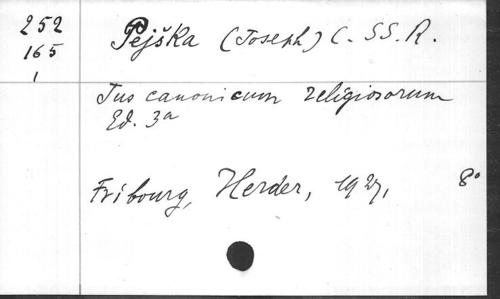 252
165
1
Pejška (Joseph) C. SS. R.
Jus canonicum religiosorum
Ed. 3a
Fribourg, Herder, 1927, 8°